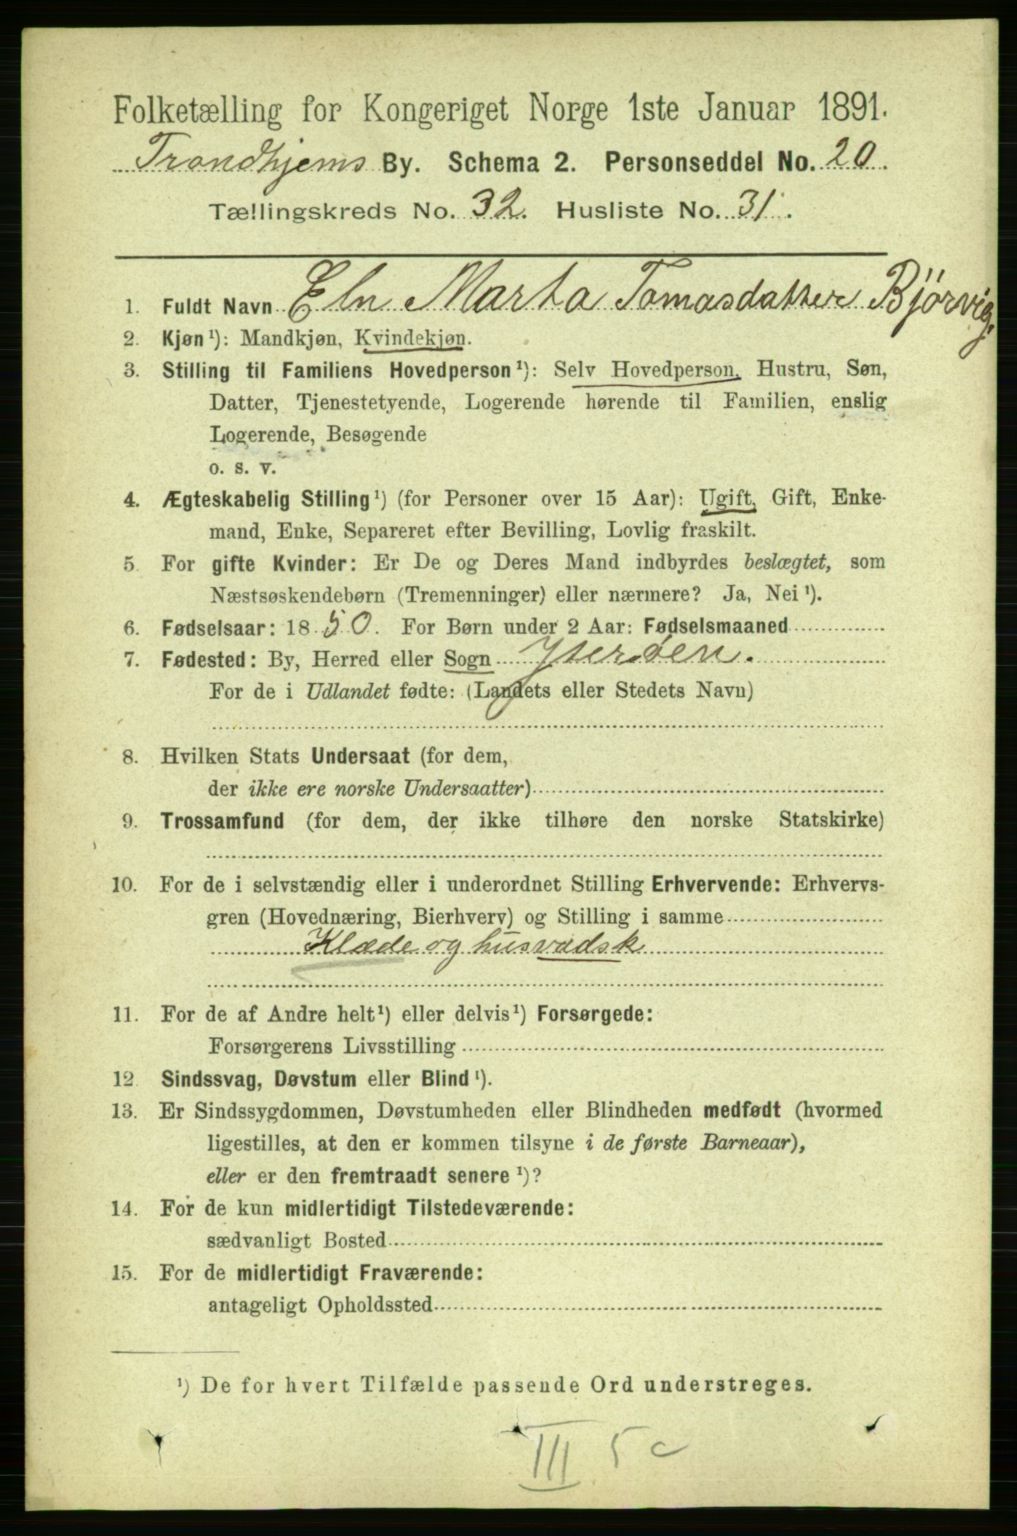 Folketælling for Kongeriget Norge 1ste Januar 1891.
Trondhjems By. Schema 2. Personseddel No. 20.
Tællingskreds No. 32. Husliste No. 31.
1. Fuldt Navn Eln Marta Tomasdatter Bjørvig,
2. Kjøn ¹): Mandkjøn, Kvindekjøn.
3. Stilling til Familiens Hovedperson ¹): Selv Hovedperson, Hustru, Søn,
Datter, Tjenestetyende, Logerende hørende til Familien, enslig
Logerende, Besøgende
o. s. v.
4. Ægteskabelig Stilling ¹) (for Personer over 15 Aar): Ugift, Gift, Enke-
mand, Enke, Separeret efter Bevilling, Lovlig fraskilt.
5. For gifte Kvinder: Er De og Deres Mand indbyrdes beslægtet, som
Næstsøskendebørn (Tremenninger) eller nærmere? Ja, Nei ¹).
6. Fødselsaar: 1850. For Børn under 2 Aar: Fødselsmaaned
7. Fødested: By, Herred eller Sogn Yterøen.
For de i Udlandet fødte: (Landets eller Stedets Navn)
8. Hvilken Stats Undersaat (for dem,
der ikke ere norske Undersaatter)
9. Trossamfund (for dem, der ikke tilhøre den norske Statskirke)
10. For de i selvstændig eller i underordnet Stilling Erhvervende: Erhvervs-
gren (Hovednæring, Bierhverv) og Stilling i samme
Klæde og husvadsk
11. For de af Andre helt ¹) eller delvis ¹) Forsørgede:
Forsørgerens Livsstilling
12. Sindssvag, Døvstum eller Blind ¹).
13. Er Sindssygdommen, Døvstumheden eller Blindheden medfødt (hvormed
ligestilles, at den er kommen tilsyne i de første Barneaar),
eller er den fremtraadt senere ¹)?
14. For de kun midlertidigt Tilstedeværende:
sædvanligt Bosted
15. For de midlertidigt Fraværende:
antageligt Opholdssted
¹) De for hvert Tilfælde passende Ord understreges.
III 5 c